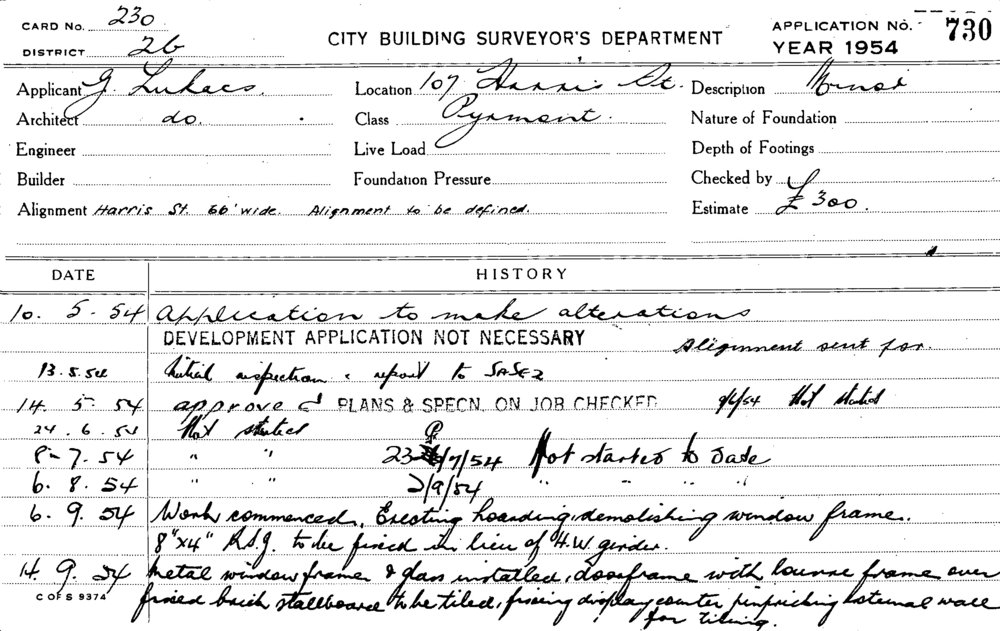 CARD NO. 230
DISTRICT 26
CITY BUILDING SURVEYOR'S DEPARTMENT
APPLICATION NO. 730
YEAR 1954
Applicant G. Lukacs. Location 107 Harris St. Description Minor
Architect do. Class Pyrmont. Nature of Foundation
Engineer Live Load Depth of Footings
Builder Foundation Pressure Checked by
Alignment Harris St. 66' wide. Alignment to be defined. Estimate £300.
DATE HISTORY
10. 5. 54 Application to make alterations
DEVELOPMENT APPLICATION NOT NECESSARY Alignment sent for.
13.5.54 Initial inspection & report to
14. 5 54 approved PLANS & SPECN. ON JOB CHECKED 9/6/54 Not started
24.6.54 Not started
8-7.54 " " 23/7/54 Not started to date
6.8.54 " " 2/9/54 " " " "
6.9.54 Work commenced. Erecting hoarding, demolishing window frame.
8"x4" R.S.J. to be fixed in lieu of H.W. girder.
14.9.54 Metal window frame & glass installed, doorframe with louvre frame over
C OF S 9374 fixed brick stallboard to be tiled, fixing display counter external wall
for tiling.